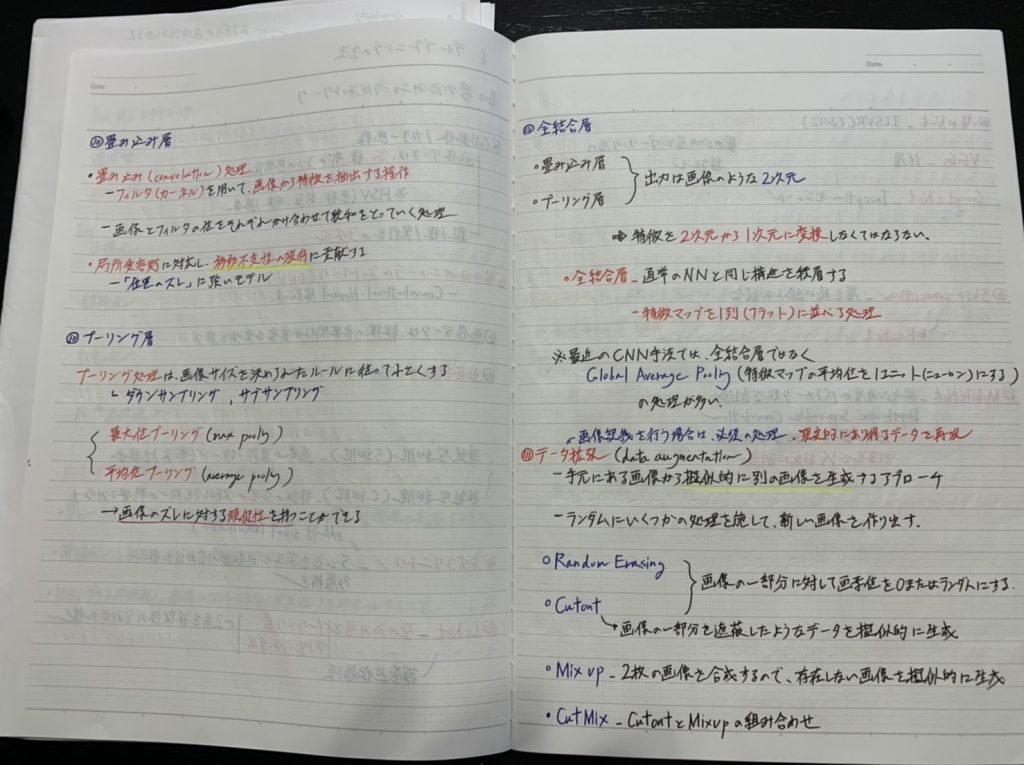 Date
畳み込み層
・畳み込み(convolution)処理
－フィルタ(カーネル)を用いて、画像から特徴を抽出する操作
－画像とフィルタの値をそれぞれかけ合わせて総和をとっていく処理
・局所受容野に対応し、移動不変性の獲得に貢献する
－「位置のズレ」に強いモデル
プーリング層
プーリング処理は、画像サイズを決められたルールに従って小さくする
└ ダウンサンプリング , サブサンプリング
最大値プーリング(max pooling)
平均値プーリング(average pooling)
→画像のズレに対する頑健性を持つことができる
Date
全結合層
○畳み込み層
○プーリング層
出力は画像のような2次元
⇒ 特徴を2次元から1次元に変換しなくてはならない。
○全結合層－通常のNNと同じ構造を積層する
－特徴マップを1列(フラット)に並べる処理
※最近のCNN手法では、全結合層ではなく
Global Average Pooling (特徴マップの平均値を1ユニット(ニューロン)にする)
の処理が多い。
画像認識を行う場合は、必須の処理、現実的にあり得るデータを再現
データ拡張(data augmentation)
－手元にある画像から擬似的に別の画像を生成するアプローチ
－ランダムにいくつかの処理を施して、新しい画像を作り出す。
○Random Erasing
○Cutout
画像の一部分に対して画素値を0またはランダムにする.
→画像の一部分を遮蔽したようなデータを擬似的に生成
○Mixup－2枚の画像を合成するので、存在しない画像を擬似的に生成
・CutMix－CutoutとMixupの組み合わせ